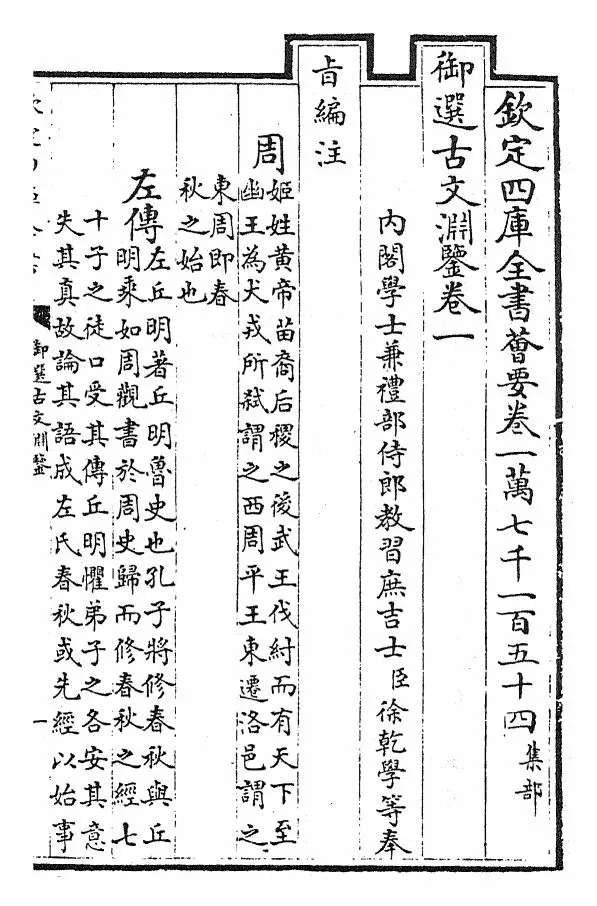 欽定四庫全書薈要卷一萬七千一百五十四 集部
御選古文淵鑒卷一
內閣學士兼禮部侍郎教習庶吉士臣徐乾學等奉
旨編注
周 姬姓黃帝苗裔后稷之後武王伐紂而有天下至
幽王為犬戎所弒謂之西周平王東遷洛邑謂之
東周即春
秋之始也
左傳 左丘明著丘明魯史也孔子將修春秋與丘
明乘如周觀書於周史歸而修春秋之經七
十子之徒口受其傳丘明懼弟子之各安其意
失其真故論其語成左氏春秋或先經以始事
御選古文淵鑒
一